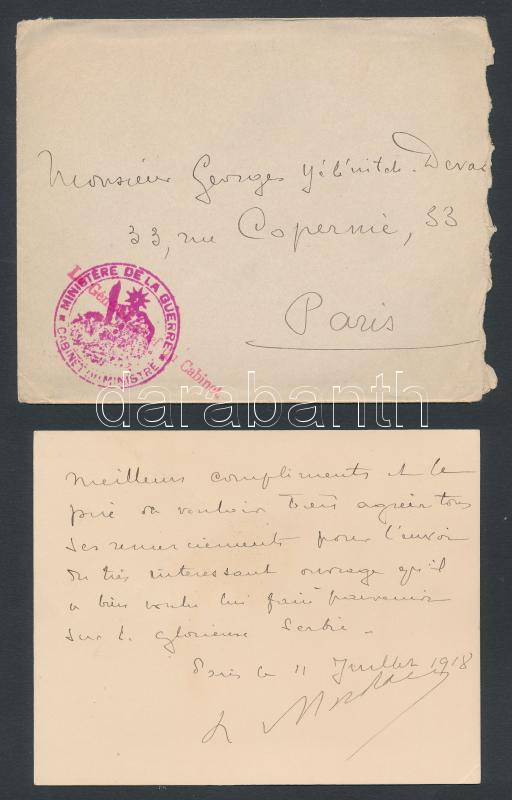 Monsieur Georges Yélénitch. Devas
33, rue Copernic, 33
Paris
MINISTÈRE DE LA GUERRE
CABINET DU MINISTRE
Le Gén Cabinet
darabanth
meilleurs compliments et le
prie de vouloir bien agréer tous
ses remerciements pour l'envoi
du très intéressant ouvrage qu'il
a bien voulu lui faire parvenir
sur la glorieuse Serbie.
Paris le 11 Juillet 1918